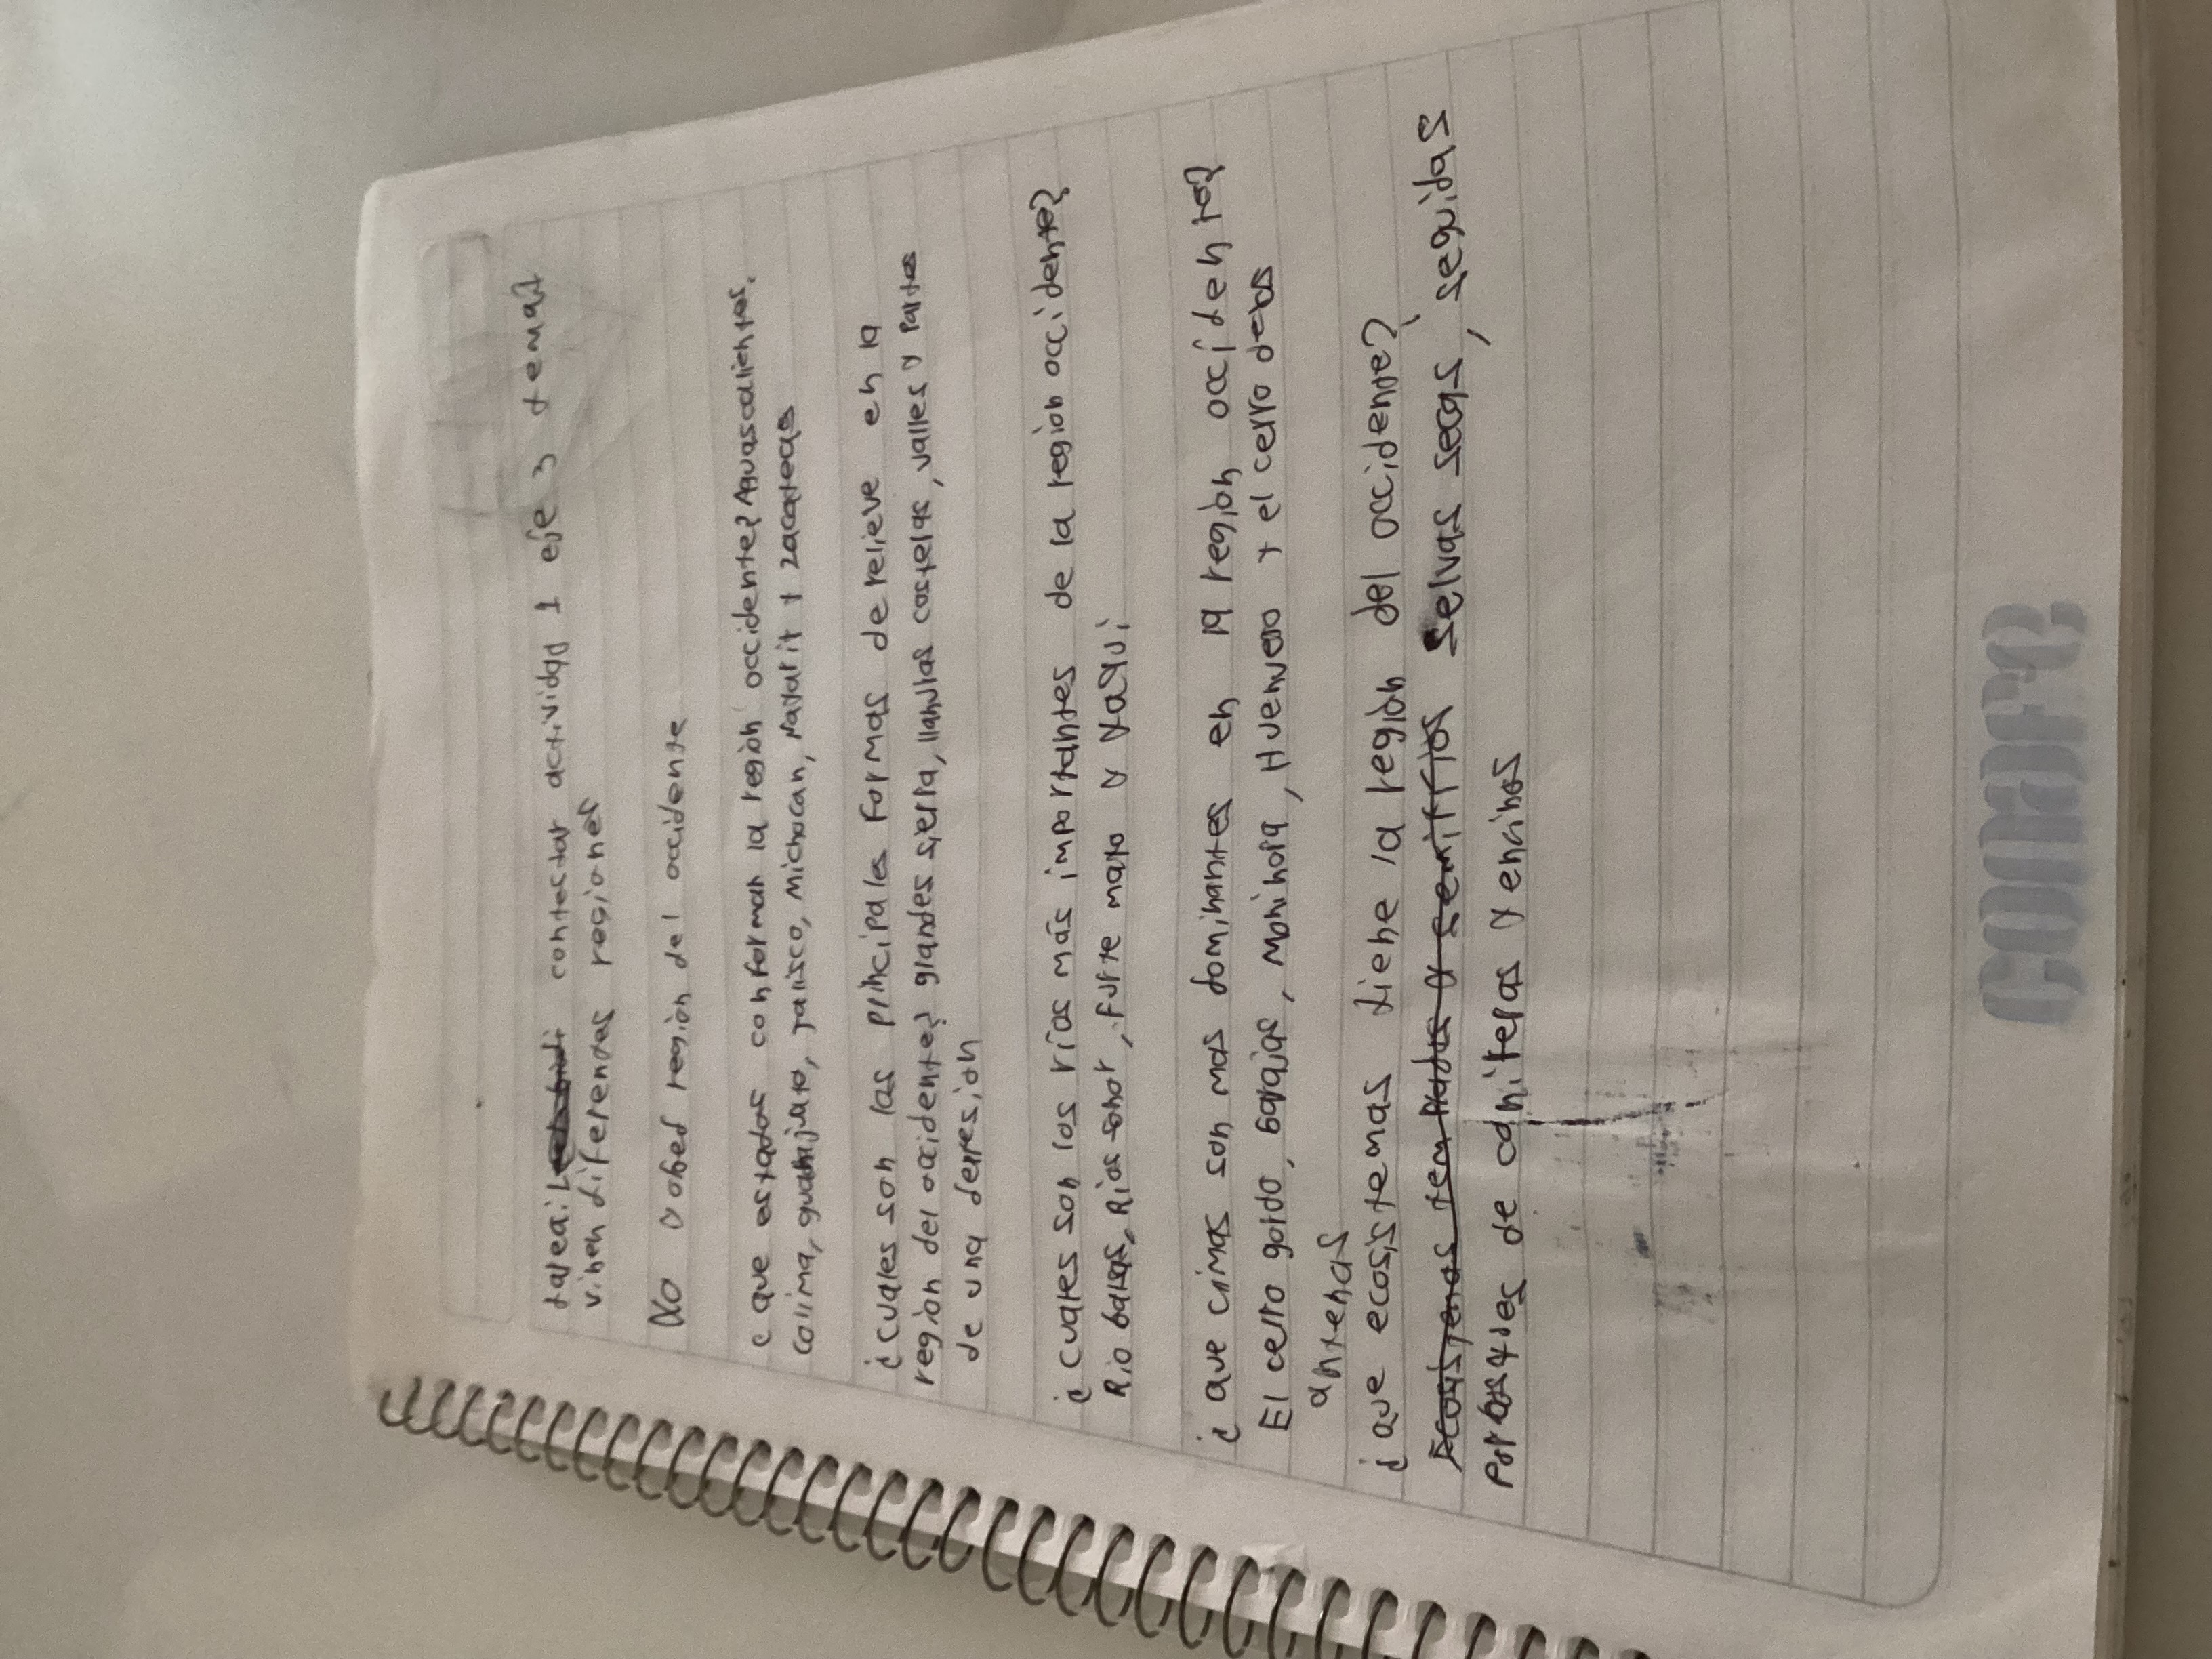 tarea: contestar actividad 1 eje 3 tema2
vinen diferentes regiones
No y obed región del occidente
¿ que estados conforman la región occidente? Aguascalientes,
Colima, guanijuato, Jalisco, Michocan, Nayarit y zacatecas
¿cuales son las principales formas de relieve en la
región del occidente? grandes sierra, llanuras costeras, valles y Partes
de una depresion
¿cuales son los ríos más importantes de la region occidente?
Rio balsas, Rios sonor, Furte mayo y Yaqui
¿que cimas son mas dominantes en la región occidente?
El cerro gordo, barajas, Mohinora, Huehueto y el cerro de las
antenas
¿que ecosistemas tiene la región del occidente?
Selvas secas, seguidas
Por de coniferas y encinos
CONAFE